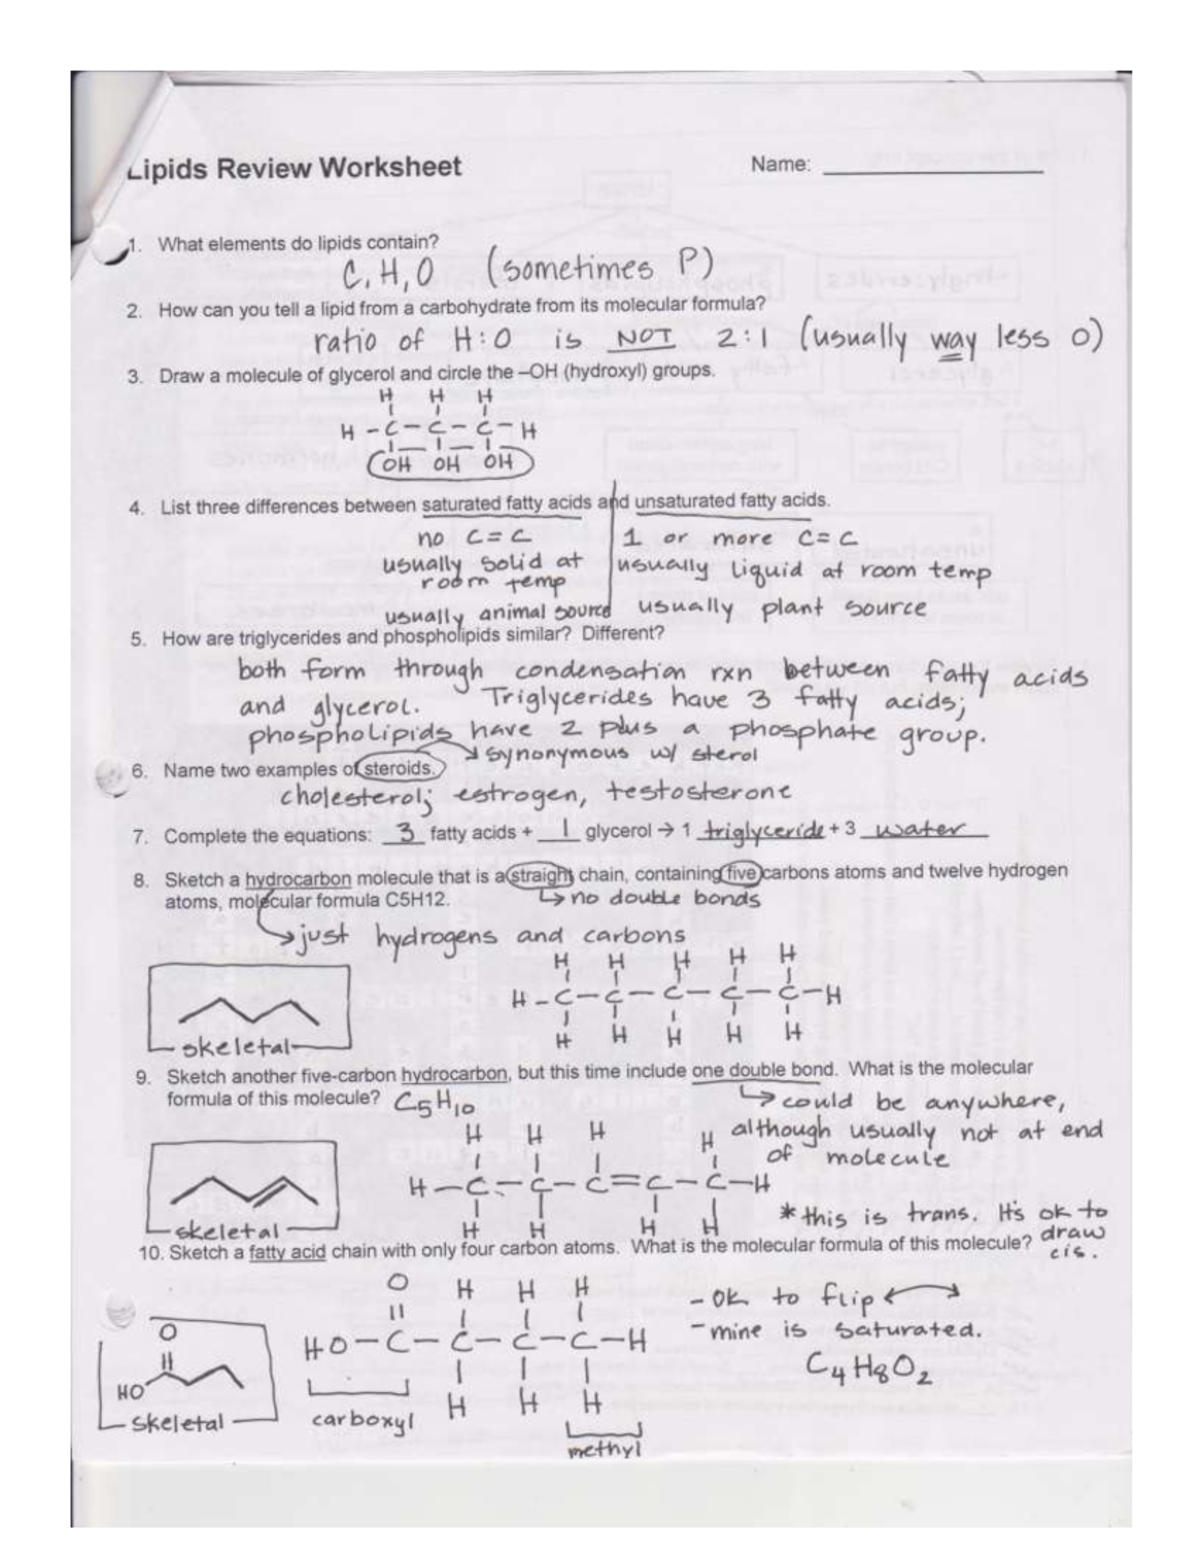 Lipids Review Worksheet Name:
1. What elements do lipids contain?
C, H, O (sometimes P)
2. How can you tell a lipid from a carbohydrate from its molecular formula?
ratio of H:O is NOT 2:1 (usually way less O)
3. Draw a molecule of glycerol and circle the –OH (hydroxyl) groups.
H H H
H - C - C - C - H
OH OH OH
4. List three differences between saturated fatty acids and unsaturated fatty acids.
no C=C 1 or more C=C
usually solid at usually liquid at room temp
room temp
usually animal source usually plant source
5. How are triglycerides and phospholipids similar? Different?
both form through condensation rxn between fatty acids
and glycerol. Triglycerides have 3 fatty acids;
phospholipids have 2 plus a phosphate group.
synonymous w/ sterol
6. Name two examples of steroids.
cholesterol; estrogen, testosterone
7. Complete the equations: 3 fatty acids + 1 glycerol → 1 triglyceride + 3 water
8. Sketch a hydrocarbon molecule that is a straight chain, containing five carbons atoms and twelve hydrogen
atoms, molecular formula C5H12. ↳ no double bonds
just hydrogens and carbons
H H H H H
H - C - C - C - C - C - H
H H H H H
skeletal
9. Sketch another five-carbon hydrocarbon, but this time include one double bond. What is the molecular
formula of this molecule? C5H10 ↳ could be anywhere,
although usually not at end
of molecule
H H H H
H - C - C - C = C - C - H
H H H H
* this is trans. It's ok to
draw
cis.
skeletal
10. Sketch a fatty acid chain with only four carbon atoms. What is the molecular formula of this molecule?
O H H H
HO - C - C - C - C - H
H H H
- OK to flip
- mine is saturated.
C4H8O2
O
HO
skeletal
carboxyl
methyl